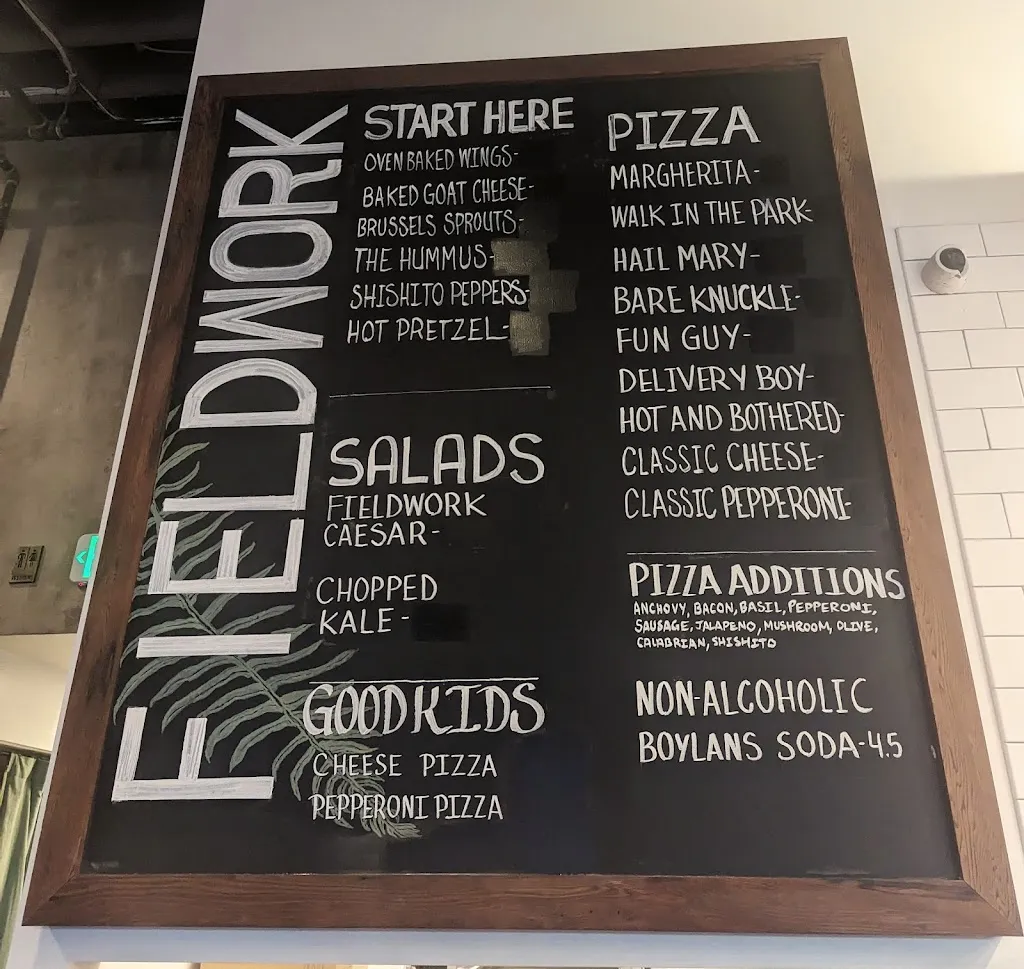 FIELDWORK
START HERE
OVEN BAKED WINGS-
BAKED GOAT CHEESE-
BRUSSELS SPROUTS-
THE HUMMUS-
SHISHITO PEPPERS-
HOT PRETZEL-
SALADS
FIELDWORK
CAESAR-
CHOPPED
KALE -
GOOD KIDS
CHEESE PIZZA
PEPPERONI PIZZA
PIZZA
MARGHERITA-
WALK IN THE PARK-
HAIL MARY-
BARE KNUCKLE-
FUN GUY-
DELIVERY BOY-
HOT AND BOTHERED-
CLASSIC CHEESE-
CLASSIC PEPPERONI-
PIZZA ADDITIONS
ANCHOVY, BACON, BASIL, PEPPERONI,
SAUSAGE, JALAPENO, MUSHROOM, OLIVE,
CALABRIAN, SHISHITO
NON-ALCOHOLIC
BOYLANS SODA-4.5